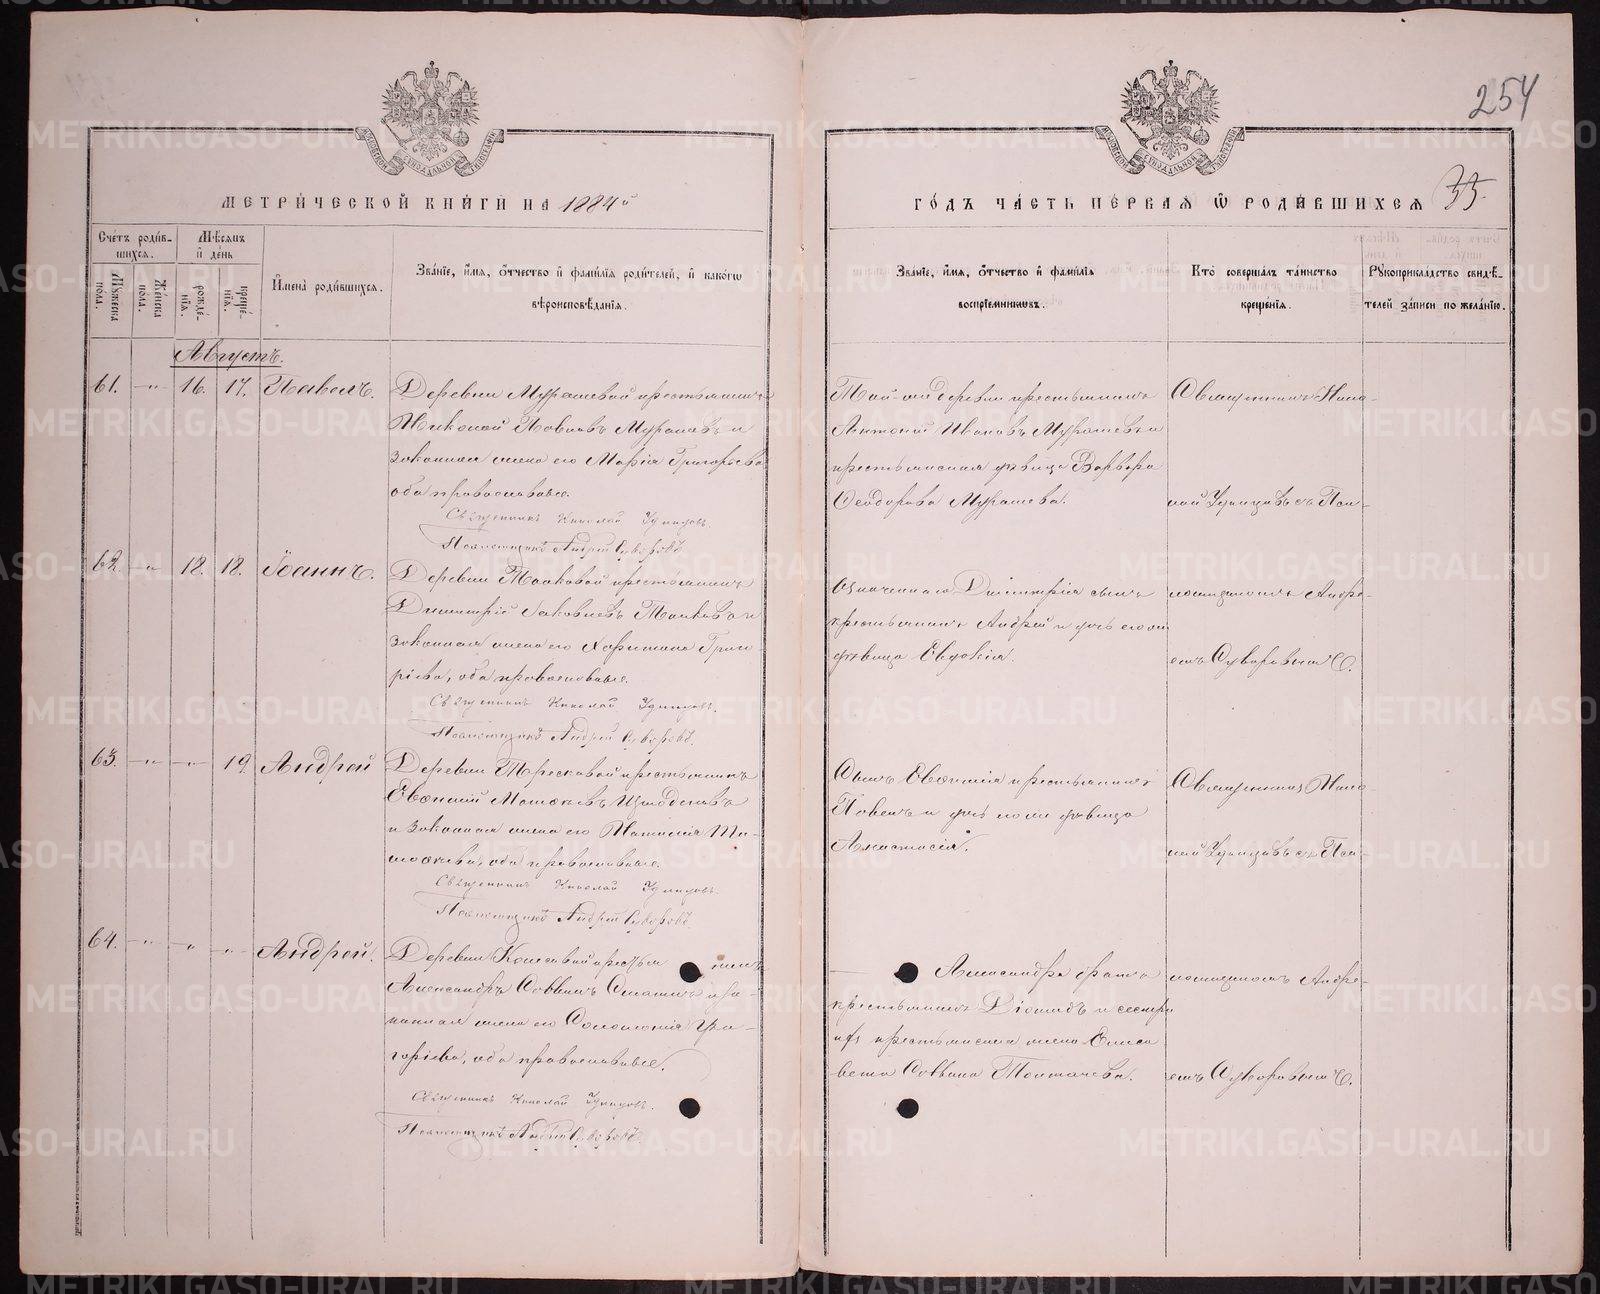 254
МЕТРИЧЕСКОЙ КНИГИ НА 1884й
ГОДЪ ЧАСТЬ ПЕРВАЯ Ѿ РОДИВШИХСЯ
35
Счетъ родив-
шихся.
Мѣсяцъ
и день
Мужеска
пола.
Женска
пола.
рожде-
нія.
креще-
нія.
Имена родившихся.
Званіе, имя, отчество и фамилія родителей, и какогѡ
вѣроисповѣданія.
Званіе, имя, отчество и фамилія
воспріемниковъ.
Кто совершалъ таинство
крещенія.
Рукоприкладство свидѣ-
телей записи по желанію.
Августъ.
61. -"- 16. 17. Павелъ.
Деревни Мурашевой крестьянинъ
Николай Павловъ Мурашевъ и
законная жена его Марія Григорьева
оба православные.
Священникъ Николай Удинцовъ.
Псаломщикъ Андрей Суворовъ.
Той-же деревни крестьянинъ
Антоній Ивановъ Мурашевъ и
крестьянская дѣвица Варвара
Ѳеодорова Мурашева.
Священникъ Нико-
лай Удинцовъ съ Пса-
62. -"- 18. 18. Іоаннъ.
Деревни крестьянинъ
Димитрій Іаковлевъ и
законная жена его Харитина Григо-
рьева, оба православные.
Священникъ Николай Удинцовъ.
Псаломщикъ Андрей Суворовъ.
Означеннаго Димитрія сынъ
крестьянинъ Андрей и дочь его же
дѣвица Евдокія.
ломщикомъ Андре-
емъ Суворовымъ.
63. -"- -"- 19. Андрей
Деревни крестьянинъ
Евѳимій
и законная жена его Наталія Ти-
моѳеева, оба православные.
Священникъ Николай Удинцовъ.
Псаломщикъ Андрей Суворовъ.
Сынъ Евѳимія крестьянинъ
Павелъ и дочь его же дѣвица
Анастасія.
Священникъ Нико-
лай Удинцовъ съ Пса-
64. -"- -"- -"- Андрей.
Деревни
Александръ Саввинъ и за-
конная жена его Соломонія Гри-
горьева, оба православные.
Священникъ Николай Удинцовъ.
Псаломщикъ Андрей Суворовъ.
Александра брата
крестьянинъ Діомидъ и сестра
ихъ крестьянская жена Елиса
вета Саввина Толмачева.
ломщикомъ Андре-
емъ Суворовымъ.
METRIKI.GASO-URAL.RU